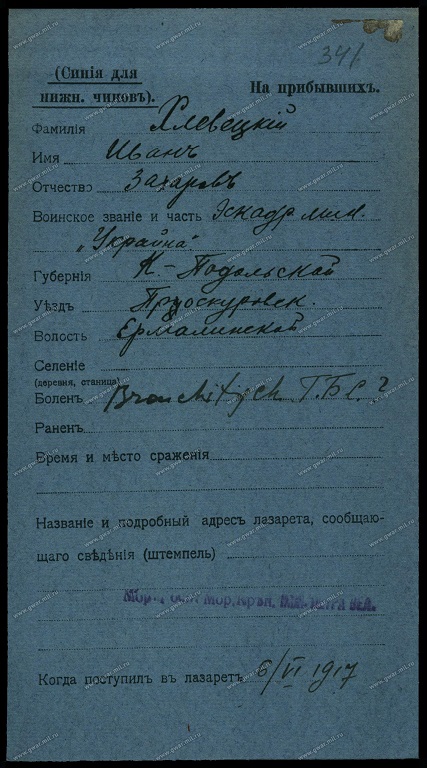 341.
(Синія для
нижн. чиновъ).
На прибывшихъ.
Фамилія Хлевецкій
Имя Иванъ
Отчество Захаровъ
Воинское званіе и часть Эскадр. мин.
„Украйна"
Губернія К.-Подольской
Уѣздъ Проскуровск.
Волость Ермолинской
Селеніе
(деревня, станица)
Боленъ Bronchit T.Б.С.?
Раненъ
Время и мѣсто сраженія
Названіе и подробный адресъ лазарета, сообщаю-
щаго свѣдѣнія (штемпель)
Мор. Мор. Крѣп. ИМП. ПЕТРА ВЕЛ.
Когда поступил въ лазаретъ 6/VI 1917
www.gwar.mil.ru